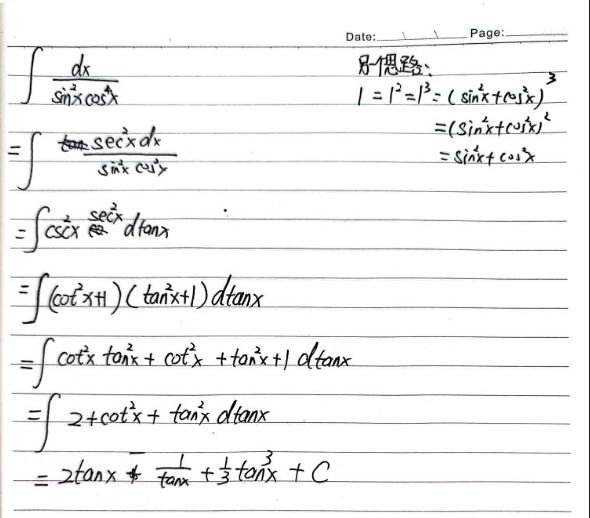 Date: Page:
∫ dx / sin²x cos⁴x
= ∫ sec²x dx / sin²x cos²x
= ∫ csc²x sec²x dtanx
= ∫ (cot²x+1)(tan²x+1) dtanx
= ∫ cot²x tan²x + cot²x + tan²x + 1 dtanx
= ∫ 2+cot²x + tan²x dtanx
= 2tanx - 1/tanx + 1/3 tan³x + C
另一个思路:
1 = 1² = 1³ = (sin²x+cos²x)³
= (sin²x+cos²x)²
= sin²x+cos²x